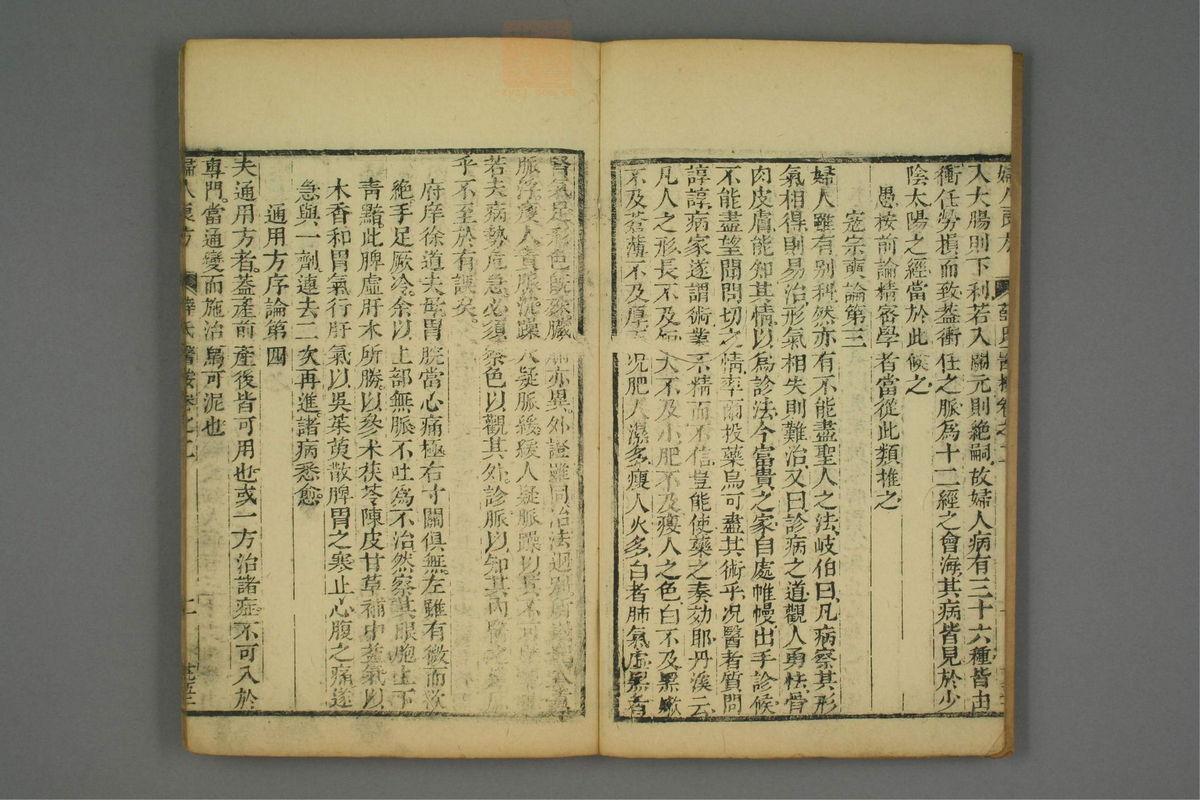 入大腸則下利若入關元則絶嗣故婦人病有三十六種皆由
衝任勞損而致蓋衝任之脈爲十二經之會海其病皆見於少
陰太陽之經當於此候之
愚按前論精密學者當從此類推之
寇宗奭論第三
婦人雖有别科然亦有不能盡聖人之法岐伯曰凡病察其形
氣相得則易治形氣相失則難治又曰診病之道觀人勇怯骨
肉皮膚能知其情以爲診法今富貴之家自處帷幔出手診候
不能盡望聞問切之情率爾投藥烏可盡其術乎况醫者質問
諄諄病家遂謂術業不精而不信豈能使藥之奏効耶丹溪云
凡人之形長不及短大不及小肥不及瘦人之色白不及黑嫩
不及蒼薄不及厚况肥人濕多瘦人火多白者肺氣虛黑者
腎氣足形色既殊臟腑亦異外證雖同治法迥别
脈浮肥人責脈沉躁人疑脈緩緩人疑脈躁以其不可
若夫病勢危急必須察色以觀其外診脈以知其内
乎不至於有誤矣
府庠徐道夫母胃脘當心痛極右寸關俱無左雖有微而欲
絶手足厥冷余以上部無脈不吐爲不治然察其眼胞上下
青黯此脾虛肝木所勝以參术茯苓陳皮甘草補中益氣以
木香和胃氣行肝氣以吳茱萸散脾胃之寒止心腹之痛遂
急與一劑遠去二次再進諸病悉愈
通用方序論第四
夫通用方者蓋產前產後皆可用也或一方治諸症不可入於
專門當通變而施治烏可泥也
婦人良方 薛氏醫按卷之二